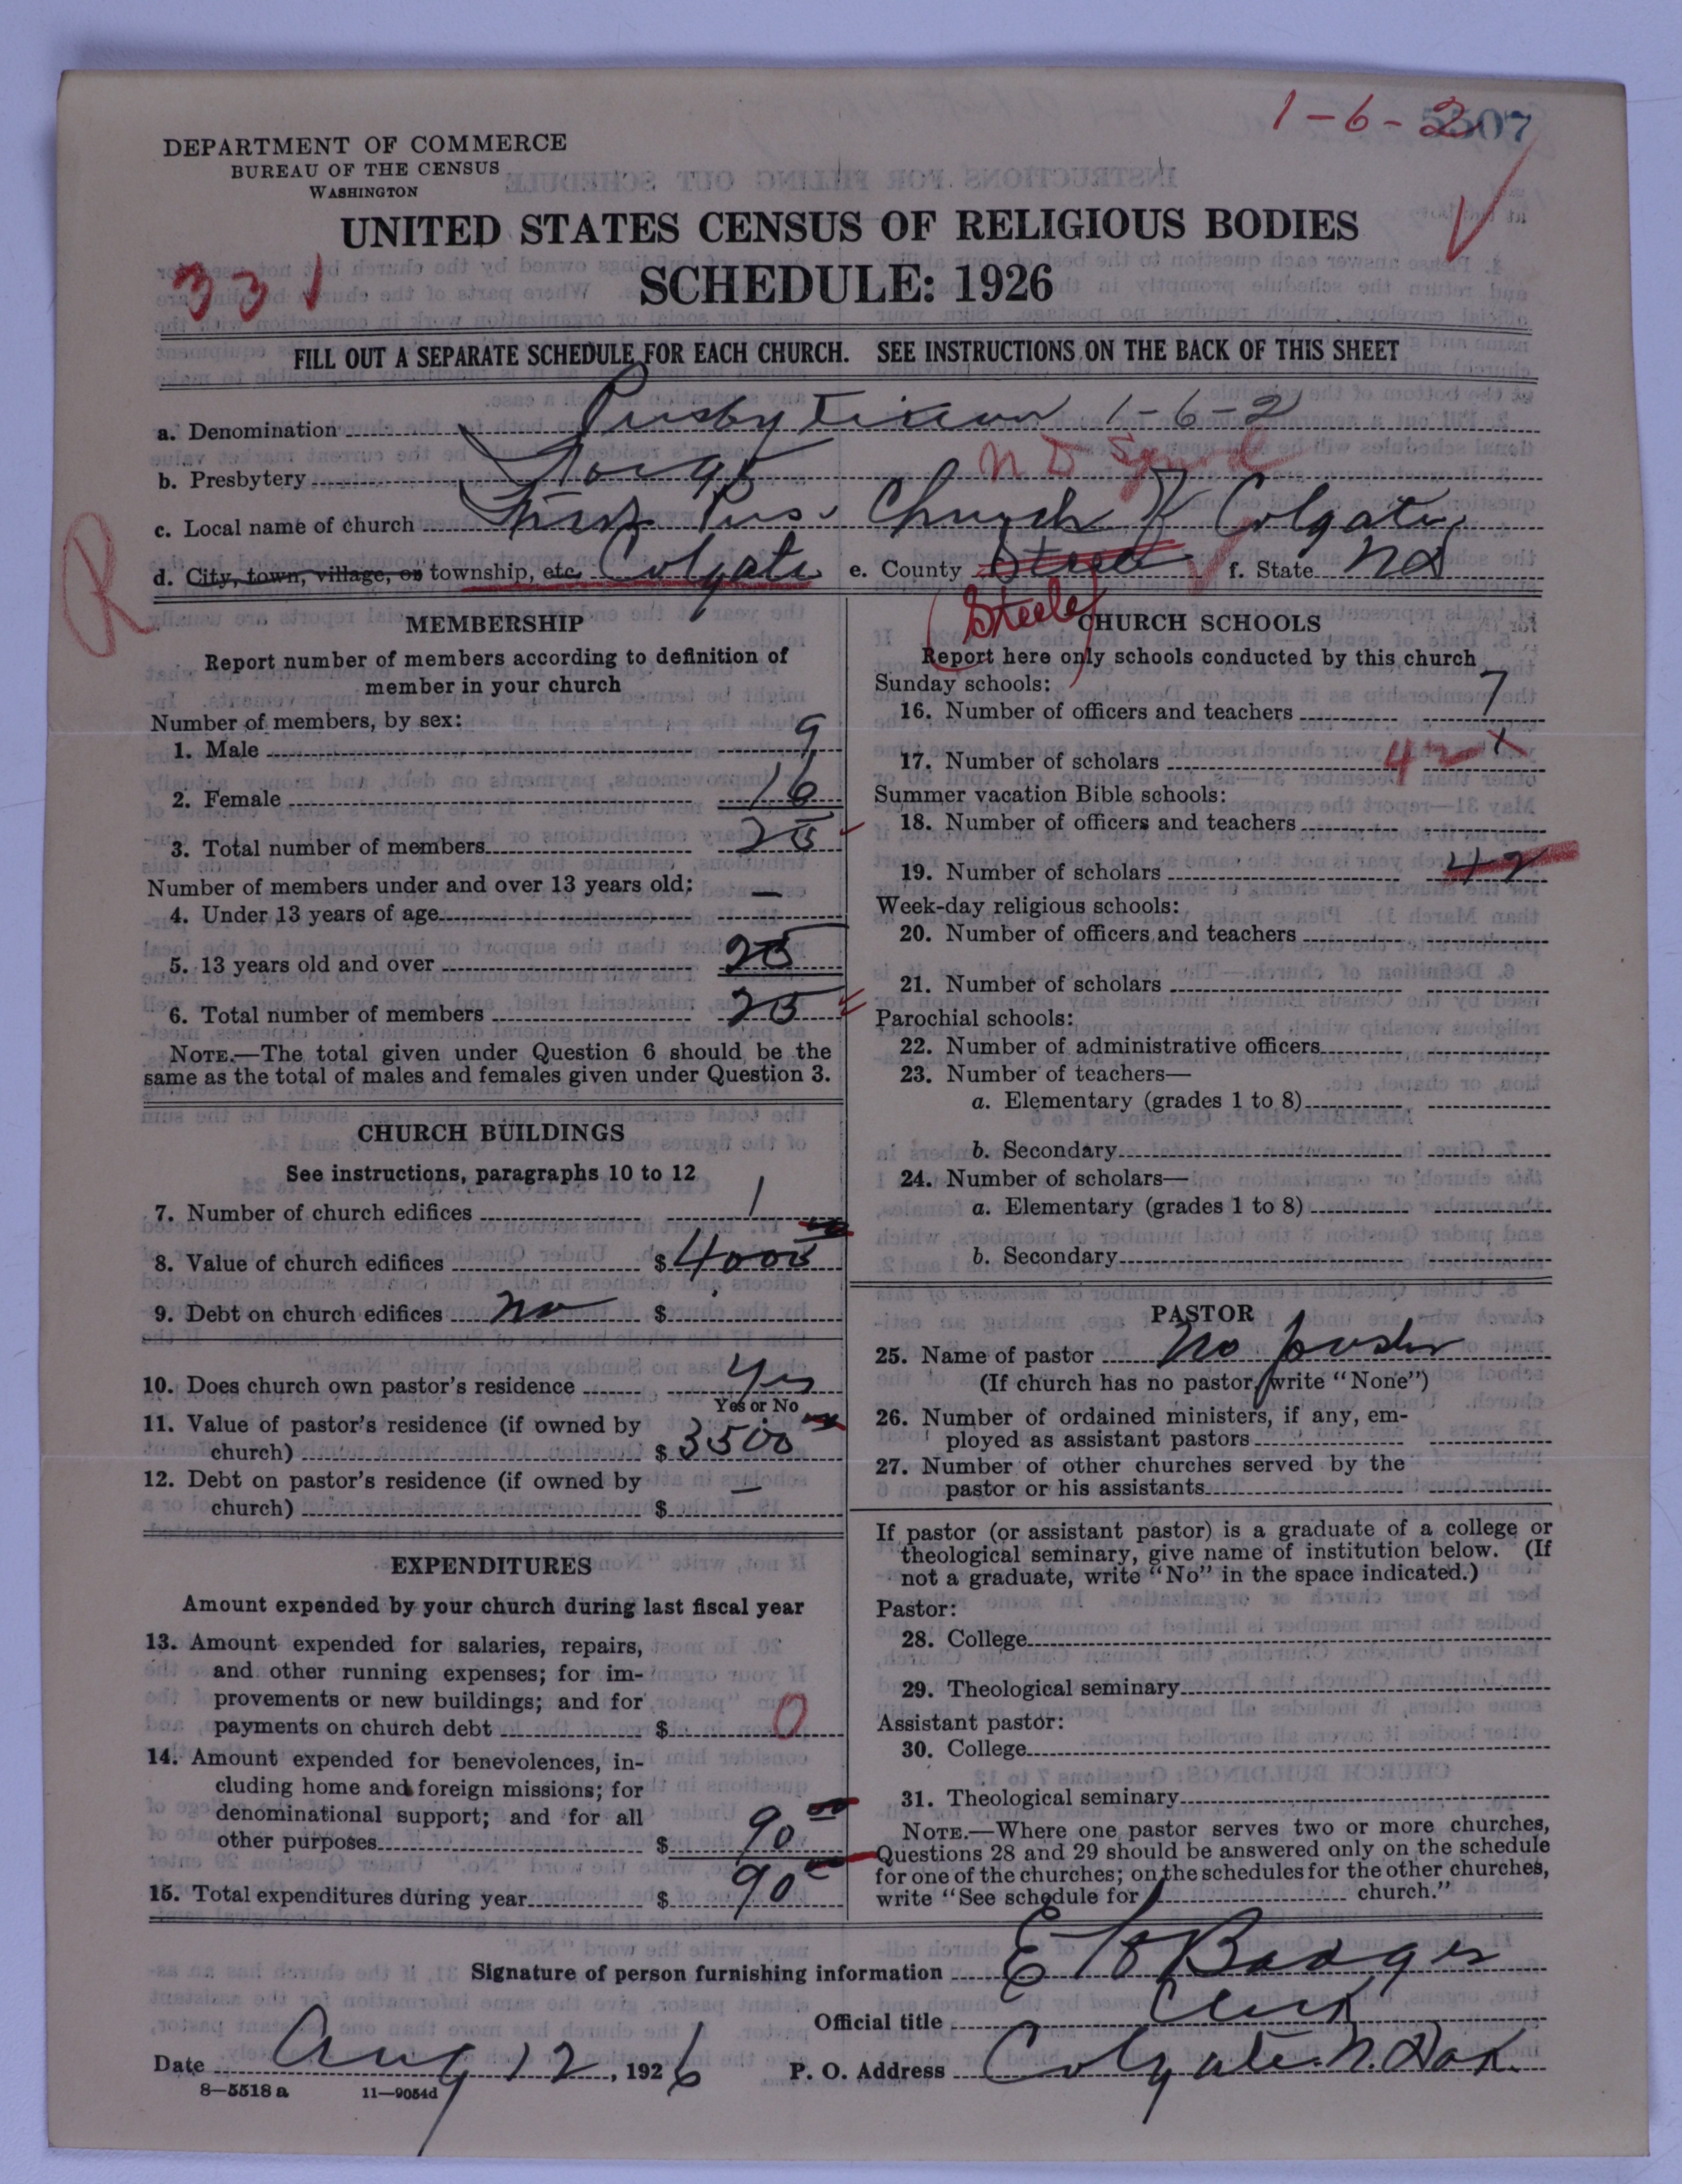 1-6-2 5507
DEPARTMENT OF COMMERCE
BUREAU OF THE CENSUS
WASHINGTON
UNITED STATES CENSUS OF RELIGIOUS BODIES
331
SCHEDULE: 1926
FILL OUT A SEPARATE SCHEDULE FOR EACH CHURCH. SEE INSTRUCTIONS ON THE BACK OF THIS SHEET
a. Denomination Presbyterian 1-6-2
b. Presbytery Fargo N D Synod
c. Local name of church First Pres. Church of Colgate
R
d. City, town, village, or township, etc. Colgate e. County Steele f. State ND
(Steele)
MEMBERSHIP
Report number of members according to definition of
member in your church
Number of members, by sex:
1. Male 9
2. Female 16
3. Total number of members 25
Number of members under and over 13 years old:
4. Under 13 years of age —
5. 13 years old and over 25
6. Total number of members 25
NOTE.—The total given under Question 6 should be the
same as the total of males and females given under Question 3.
CHURCH BUILDINGS
See instructions, paragraphs 10 to 12
7. Number of church edifices 1
8. Value of church edifices $ 4000 00
9. Debt on church edifices no $
10. Does church own pastor's residence Yes
Yes or No
11. Value of pastor's residence (if owned by
church) $ 3500
12. Debt on pastor's residence (if owned by
church) $ —
EXPENDITURES
Amount expended by your church during last fiscal year
13. Amount expended for salaries, repairs,
and other running expenses; for im-
provements or new buildings; and for
payments on church debt $ 0
14. Amount expended for benevolences, in-
cluding home and foreign missions; for
denominational support; and for all
other purposes $ 90 00
15. Total expenditures during year $ 90
CHURCH SCHOOLS
Report here only schools conducted by this church
Sunday schools:
16. Number of officers and teachers 7
17. Number of scholars 42 x
Summer vacation Bible schools:
18. Number of officers and teachers
19. Number of scholars 42
Week-day religious schools:
20. Number of officers and teachers
21. Number of scholars
Parochial schools:
22. Number of administrative officers
23. Number of teachers—
a. Elementary (grades 1 to 8)
b. Secondary
24. Number of scholars—
a. Elementary (grades 1 to 8)
b. Secondary
PASTOR
25. Name of pastor No pastor
(If church has no pastor, write "None")
26. Number of ordained ministers, if any, em-
ployed as assistant pastors
27. Number of other churches served by the
pastor or his assistants
If pastor (or assistant pastor) is a graduate of a college or
theological seminary, give name of institution below. (If
not a graduate, write "No" in the space indicated.)
Pastor:
28. College
29. Theological seminary
Assistant pastor:
30. College
31. Theological seminary
NOTE.—Where one pastor serves two or more churches,
Questions 28 and 29 should be answered only on the schedule
for one of the churches; on the schedules for the other churches,
write "See schedule for church."
Signature of person furnishing information E Badger
Official title Clerk
Date Aug 12, 1926 P. O. Address Colgate N. Dak
8—5518 a 11—9054d